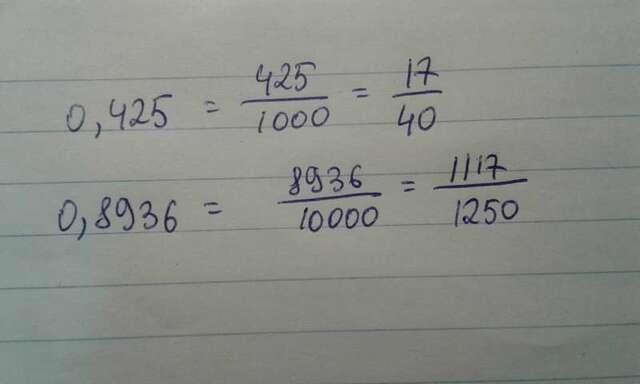 0,425 = 425/1000 = 17/40
0,8936 = 8936/10000 = 1117/1250